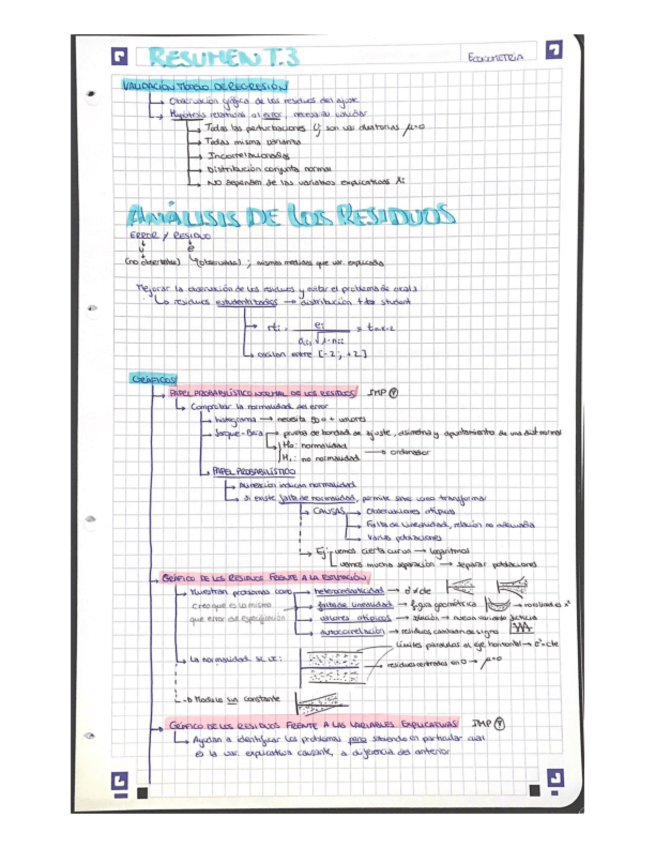 RESUMEN T.3
ECONOMETRÍA
VALIDACIÓN MODELO DE REGRESIÓN
Observación gráfica de los residuos del ajuste
Hipótesis relativas al error, necesario validar
Todas las perturbaciones Ui son var. aleatorias μ=0
Todas misma varianza
Incorrelacionadas
Distribución conjunta normal
NO dependen de las variables explicativas Xi
ANÁLISIS DE LOS RESIDUOS
ERROR / RESIDUO
u e
(no observable) (observable) ; mismas medidas que var. explicada
Mejorar la observación de los residuos y evitar el problema de escala
residuos estudentizados → distribución t de student
oscilan entre [-2, +2]
GRÁFICOS
PAPEL PROBABILÍSTICO NORMAL DE LOS RESIDUOS IMP
Comprobar la normalidad del error
histograma → necesita 50 o + valores
Jarque-Bera → prueba de bondad de ajuste, asimetría y apuntamiento de una dist. normal
H0: normalidad
H1: no normalidad → ordenador
PAPEL PROBABILÍSTICO
Alineación indican normalidad
Si existe falta de normalidad, permite saber como transformar
CAUSAS → Observaciones atípicas
Falta de linealidad, relación no adecuada
Varias poblaciones
Ej: vemos cierta curva → logaritmos
vemos mucha separación → separar poblaciones
GRÁFICO DE LOS RESIDUOS FRENTE A LA ESTIMACIÓN
Muestran problemas como → heterocedasticidad → σ² ≠ cte
Creo que es lo mismo falta de linealidad → figura geométrica
que error de especificación valores atípicos → solución → nueva variable ficticia
autocorrelación → residuos cambian de signo
Límites paralelos al eje horizontal → σ² = cte
La normalidad se ve: residuos centrados en 0 → μ=0
Modelo sin constante
GRÁFICO DE LOS RESIDUOS FRENTE A LAS VARIABLES EXPLICATIVAS IMP
Ayudan a identificar los problemas pero sabiendo en particular cual
es la var. explicativa causante, a diferencia del anterior